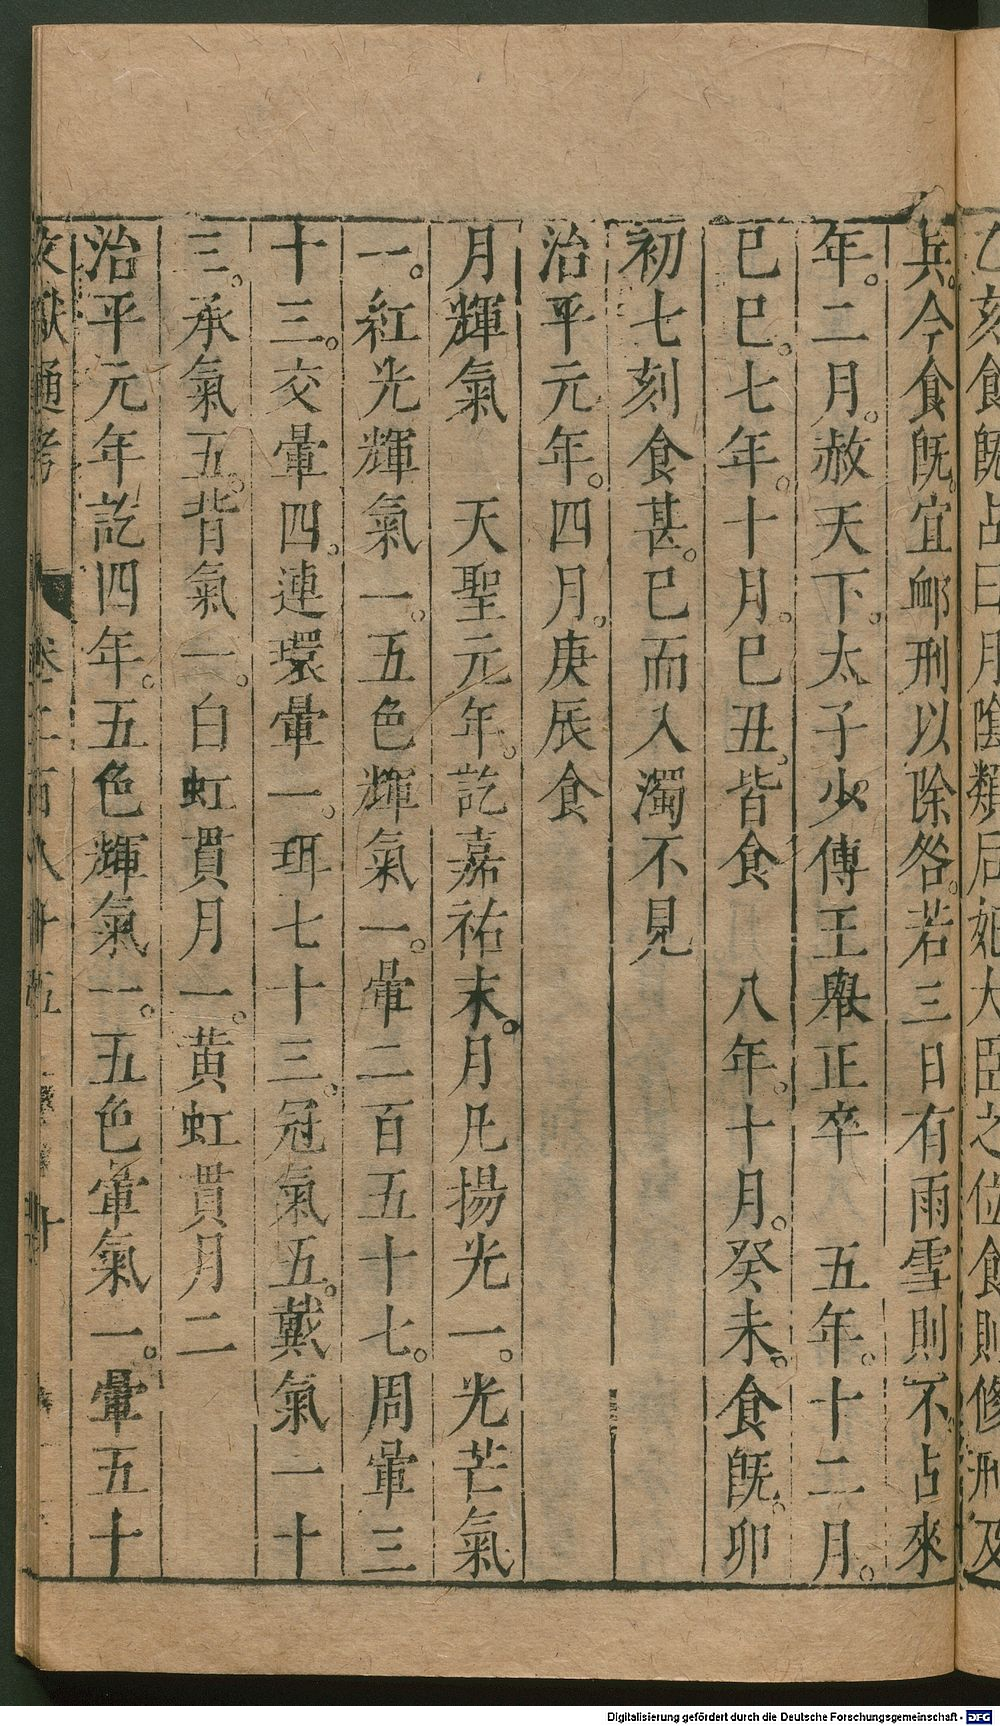 乙刻食旣占曰月陰類后妃大臣之位食則修刑及
兵。今食旣。宜䘏刑以除咎。若三日有雨雪則不占來
年。二月。赦天下。太子少傅王擧正卒　五年。十二月。
己巳。七年。十月。己丑。皆食　八年。十月。癸未。食旣。卯
初七刻食甚。已而入濁不見
治平元年。四月。庚辰食
月輝氣　天聖元年。訖嘉祐末。月凡揚光一。光芒氣
一。紅光輝氣一。五色輝氣一。暈二百五十七。周暈三
十三。交暈四。連環暈一。珥七十三。冠氣五。戴氣二十
三。承氣五。背氣一。白虹貫月一。黃虹貫月二
治平元年訖四年。五色輝氣一。五色暈氣一。暈五十
文獻通考　卷二百八十五　十
Digitalisierung gefördert durch die Deutsche Forschungsgemeinschaft - DFG